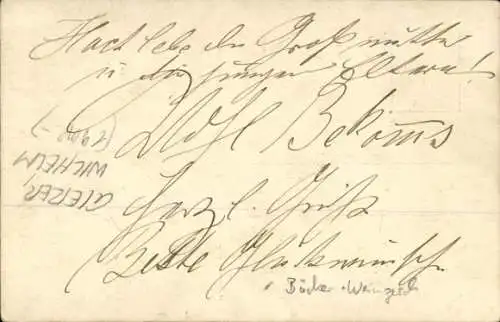 Hoch lebe die Großmutter
u die jungen Eltern!
Wohl Bekomms
Herzl. Grüß
Beste Glückwünsch
GLEIZER,
WILHELM
Bäcker